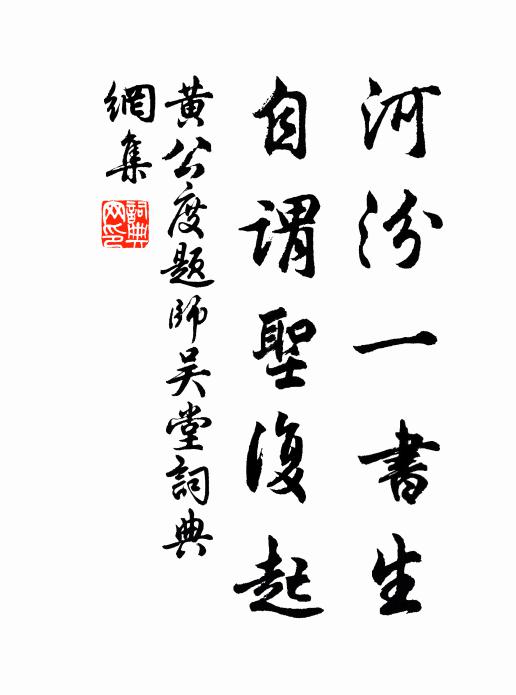 河汾一書生
自謂聖復起
黃公度题師吴堂詞典
網集
詞典網印